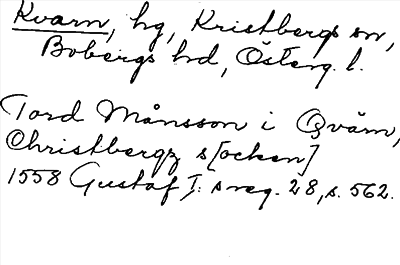 Kvarn, hg, Kristbergs sn,
Bobergs hd, Österg. l.
Tord Månsson i Qvärn,
Christbergz s[ocken]
1558 Gustaf I: s reg. 28, s. 562.